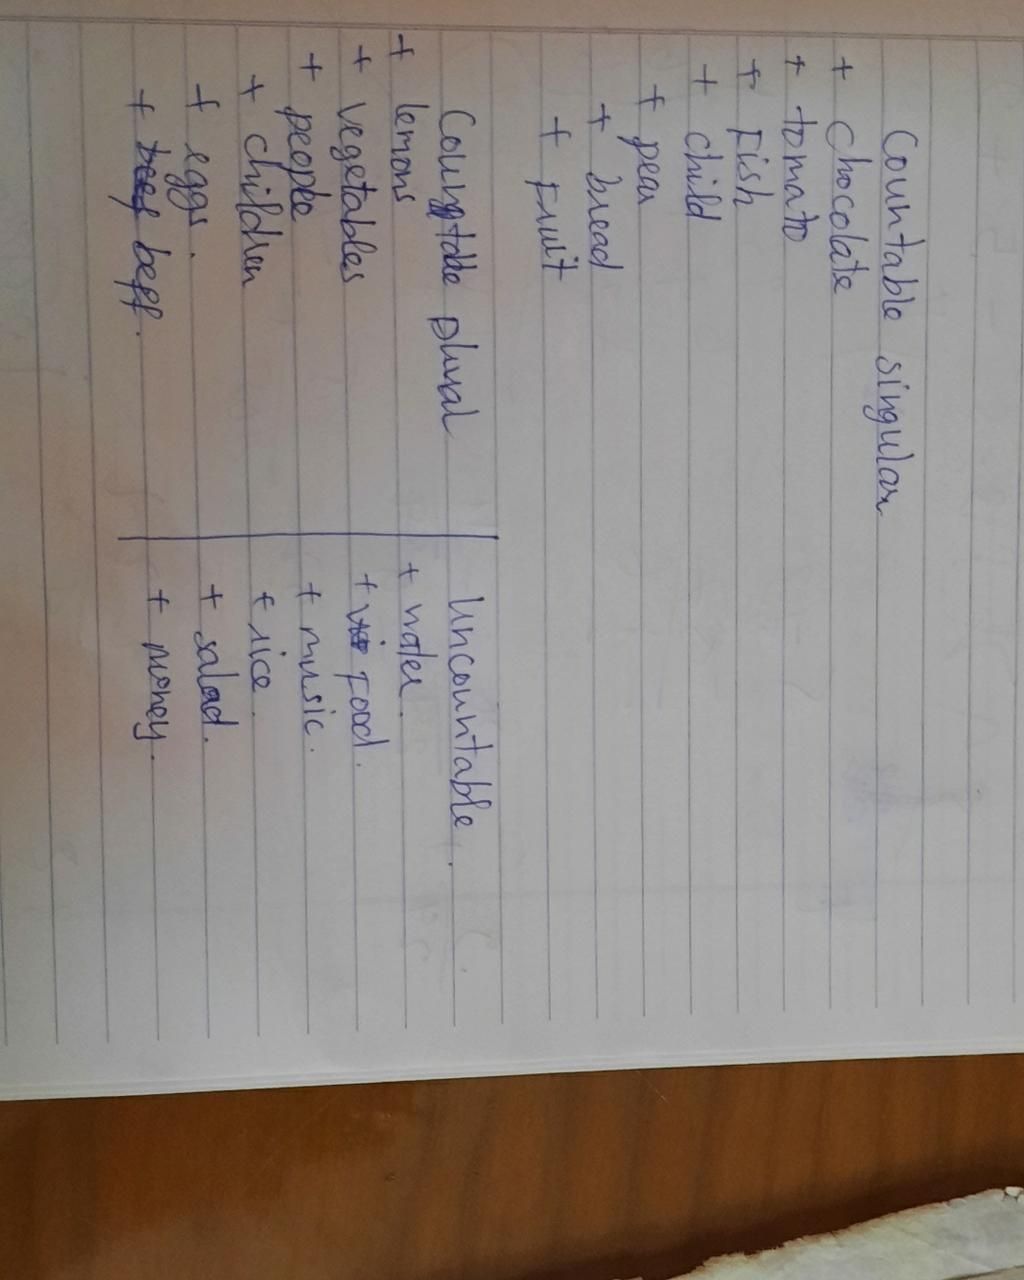 Countable singular
+ chocolate
+ tomato
+ Fish
+ child
+ pear
+ bread
+ Fruit
Countable plural
+ lemons
+ vegetables
+ people
+ children
+ eggs.
+ beff.
Uncountable.
+ water.
+ Food.
+ music.
+ rice.
+ salad.
+ money.